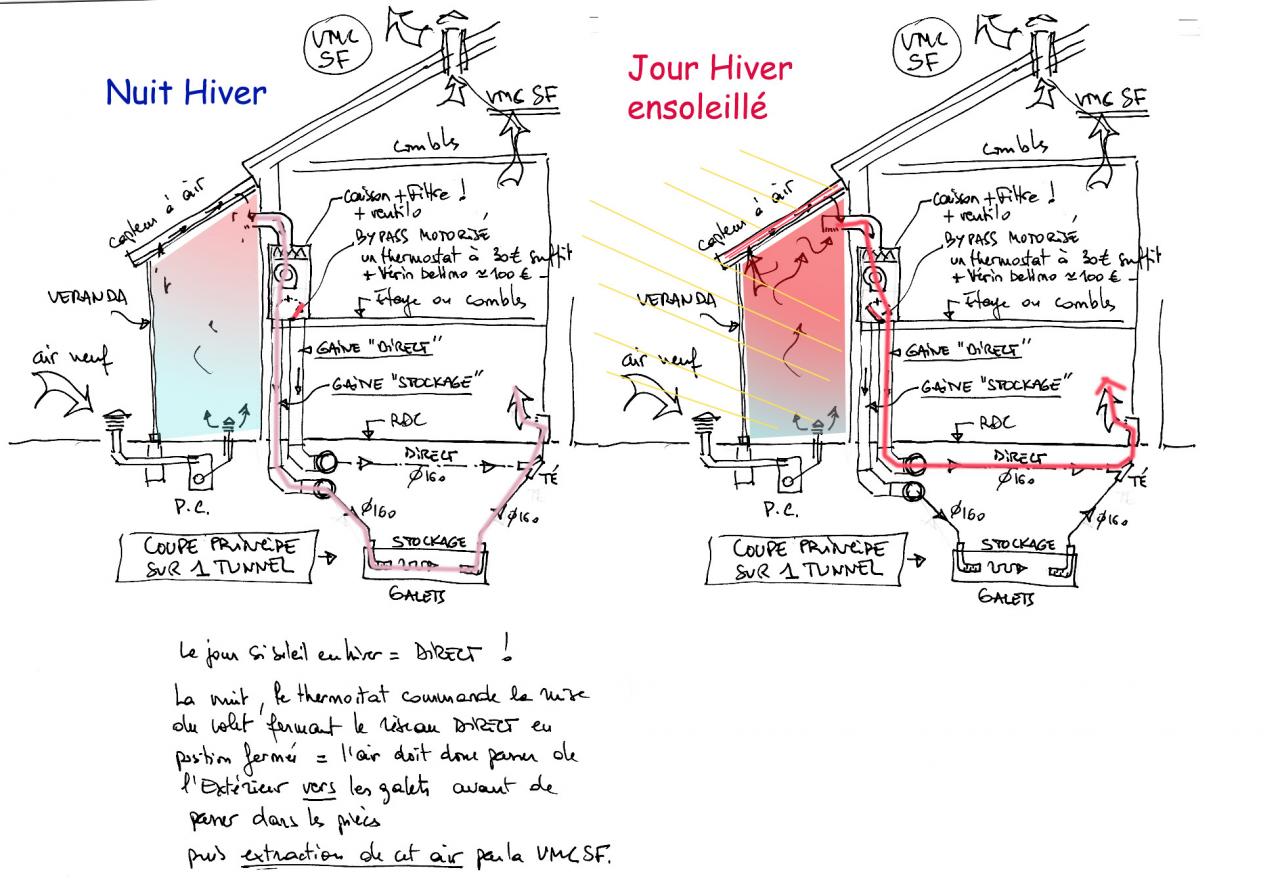 VMC
SF
Nuit Hiver
VMC SF
combles
capteur à air
caisson + Filtre !
+ ventilo
BYPASS MOTORISÉ
un thermostat à 30€ suffit
+ Vérin Belimo ≈ 100 € -
Étage ou combles
VERANDA
GAINE "DIRECT"
air neuf
GAINE "STOCKAGE"
RDC
DIRECT
Ø160
TÉ
P.C.
Ø160
Ø160
STOCKAGE
COUPE PRINCIPE
SUR 1 TUNNEL
GALETS
VMC
SF
Jour Hiver
ensoleillé
VMC SF
combles
capteur à air
caisson + Filtre !
+ ventilo
BYPASS MOTORISÉ
un thermostat à 30€ suffit
+ Vérin Belimo ≈ 100 € -
Étage ou combles
VERANDA
GAINE "DIRECT"
air neuf
GAINE "STOCKAGE"
RDC
DIRECT
Ø160
TÉ
P.C.
Ø160
Ø160
STOCKAGE
COUPE PRINCIPE
SUR 1 TUNNEL
GALETS
Le jour si soleil en hiver = DIRECT !
La nuit, le thermostat commande la mise
du volet fermant le réseau DIRECT en
position fermé = l'air doit donc passer de
l'Extérieur vers les galets avant de
passer dans les pièces
puis extraction de cet air par la VMC SF.